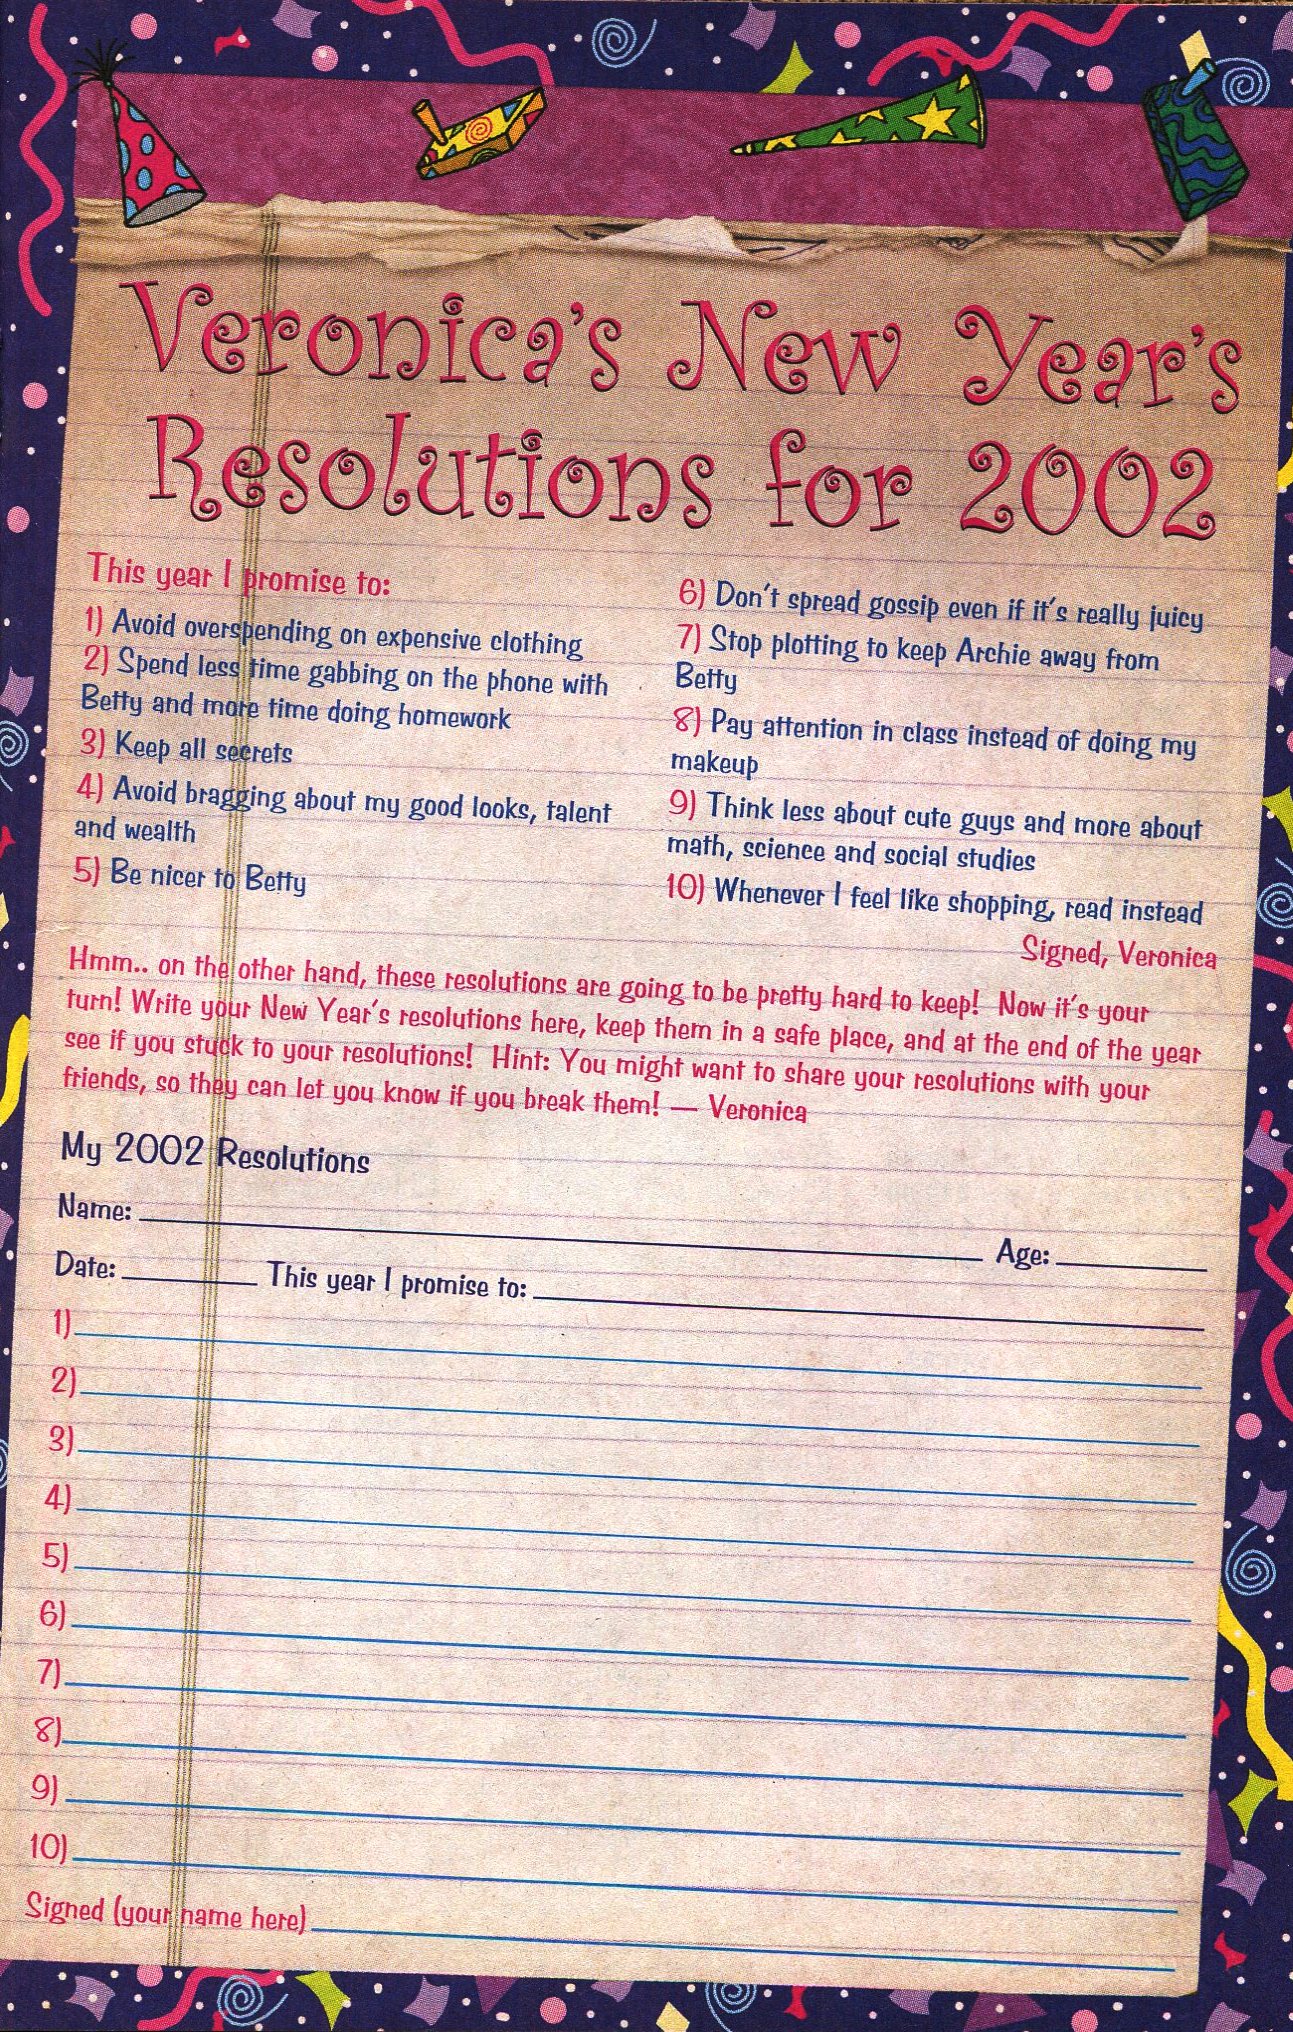 Veronica's New Year's
Resolutions for 2002
This year I promise to:
1) Avoid overspending on expensive clothing
2) Spend less time gabbing on the phone with
Betty and more time doing homework
3) Keep all secrets
4) Avoid bragging about my good looks, talent
and wealth
5) Be nicer to Betty
6) Don't spread gossip even if it's really juicy
7) Stop plotting to keep Archie away from
Betty
8) Pay attention in class instead of doing my
makeup
9) Think less about cute guys and more about
math, science and social studies
10) Whenever I feel like shopping, read instead
Signed, Veronica
Hmm.. on the other hand, these resolutions are going to be pretty hard to keep! Now it's your
turn! Write your New Year's resolutions here, keep them in a safe place, and at the end of the year
see if you stuck to your resolutions! Hint: You might want to share your resolutions with your
friends, so they can let you know if you break them! — Veronica
My 2002 Resolutions
Name: Age:
Date: This year I promise to:
1)
2)
3)
4)
5)
6)
7)
8)
9)
10)
Signed (your name here)